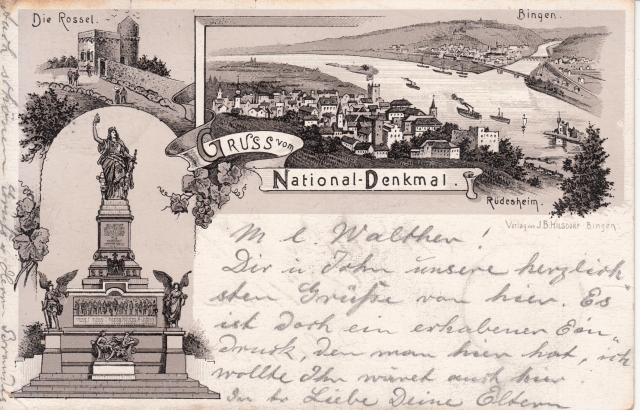 Die Rossel.
Bingen.
Gruss vom
National-Denkmal.
Rüdesheim.
Verlag von J.B. Hilsdorf Bingen.
M l. Walther!
Dir u John unsere herzlich
sten Grüße von hier. Es
ist doch ein erhabener Ein-
druck, den man hier hat, ich
wollte Ihr wäret auch hier.
In tr Liebe Deine Eltern